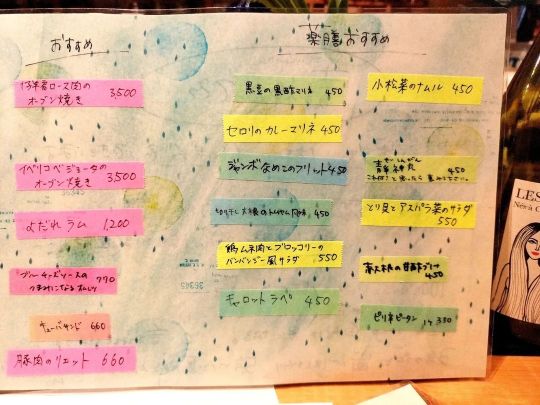 おすすめ
仔羊肩ロース肉の
オーブン焼き 3,500
イベリコベジョータの
オーブン焼き 3,500
よだれラム 1,200
ブルーチーズソースの
770
キューバサンド 660
豚肉のリエット 660
薬膳おすすめ
黒豆の黒酢マリネ 450
セロリのカレーマリネ 450
ジャンボなめこのフリット 450
切り干し大根のトムヤム風味 450
鶏ムネ肉とブロッコリーの
バンバンジー風サラダ 550
キャロットラペ 450
小松菜のナムル 450
450
とり貝とアスパラ菜のサラダ
550
450
ピリ辛ピータン 1ケ 330
36345
LES